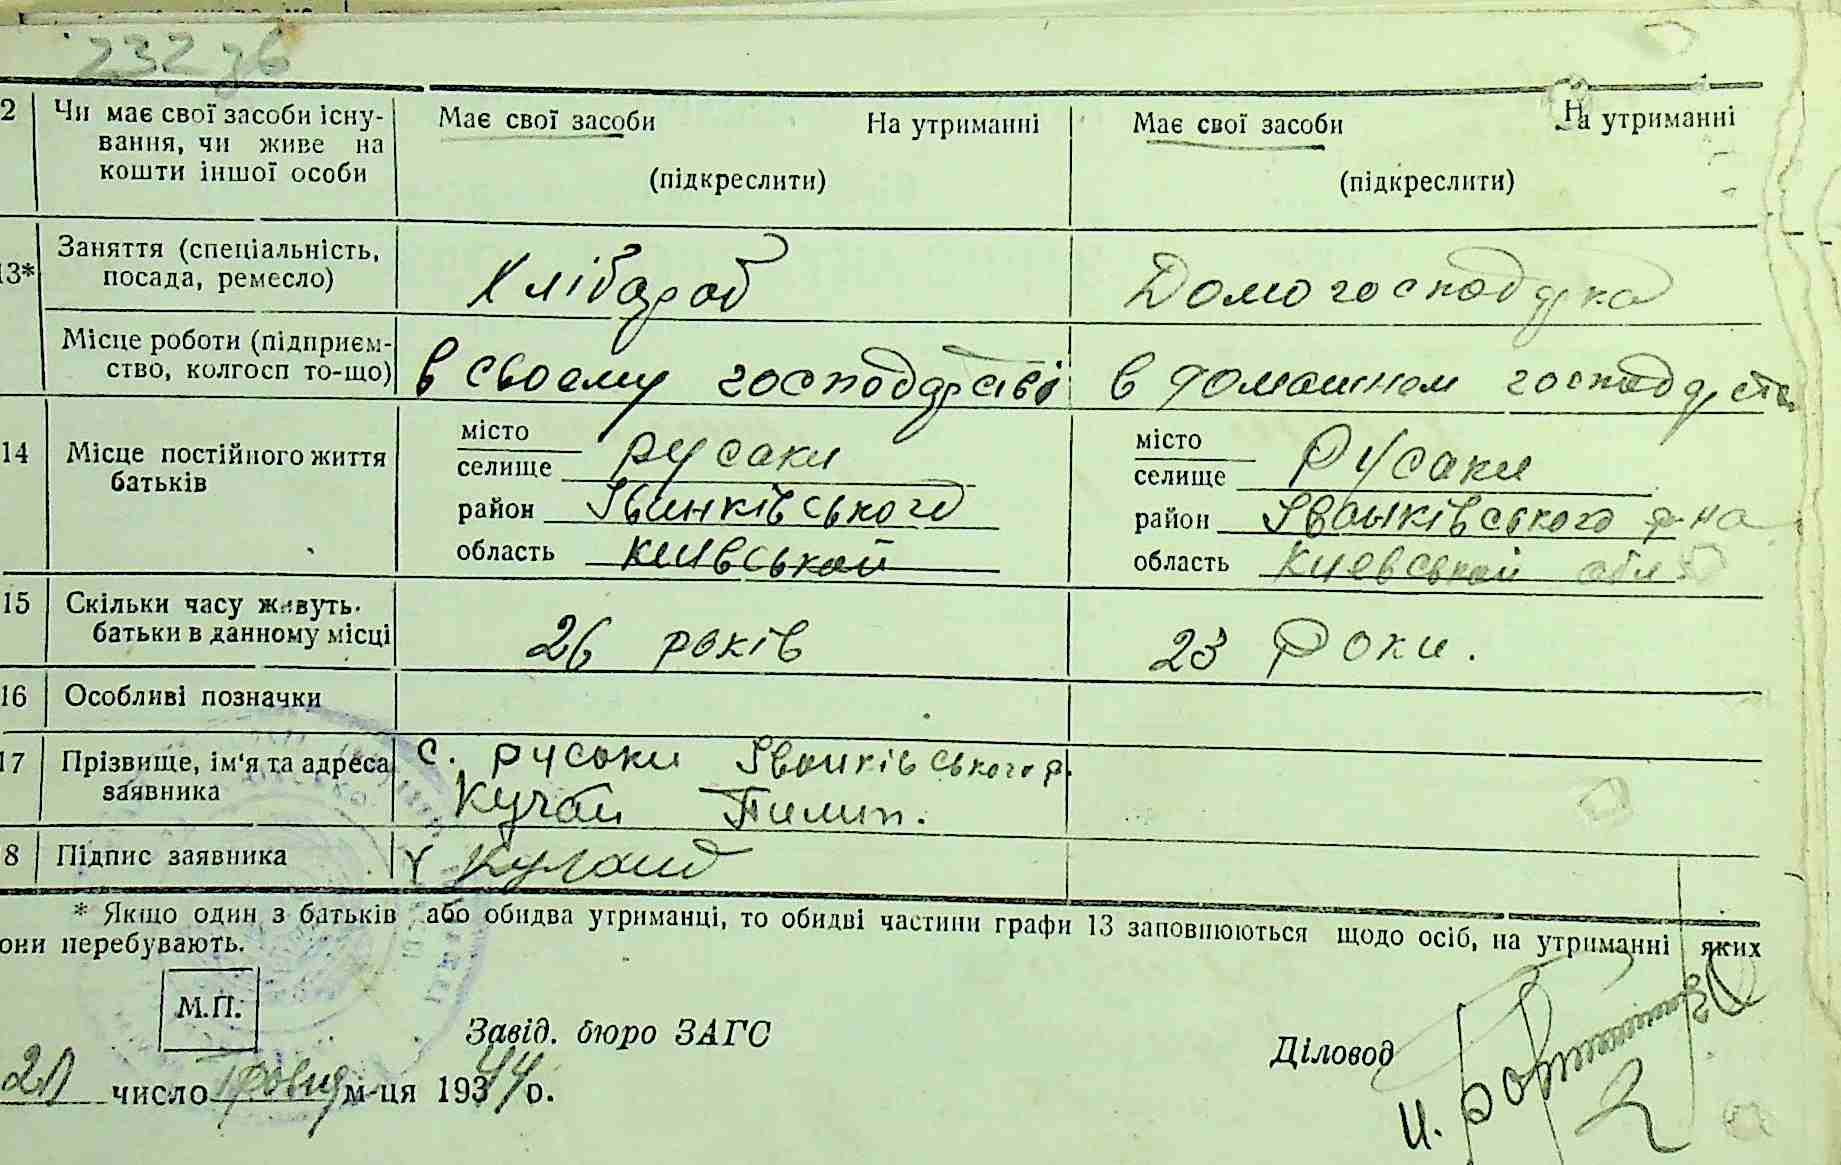 232 зв
2 Чи має свої засоби існу- Має свої засоби На утриманні Має свої засоби На утриманні
вання, чи живе на
кошти іншої особи (підкреслити) (підкреслити)
13* Заняття (спеціальність, посада, ремесло) Хлібароб Домогосподарка
Місце роботи (підприєм-
ство, колгосп то-що) в своему господарстві в домашнем господарстві
14 Місце постійного життя батьків
місто русаки місто Русаки
селище селище
район Іванківського район Іванківського р-на
область Київськой область Киевськой обл.
15 Скільки часу живуть
батьки в данному місці 26 років 23 Роки.
16 Особливі позначки
17 Прізвище, ім'я та адреса с. русаки Іванківського р.
заявника Кучай Пилип.
8 Підпис заявника
* Якщо один з батьків або обидва утриманці, то обидві частини графи 13 заповнюються щодо осіб, на утриманні яких
они перебувають.
М.П.
Завід. бюро ЗАГС
Діловод
число м-ця 19344 р.